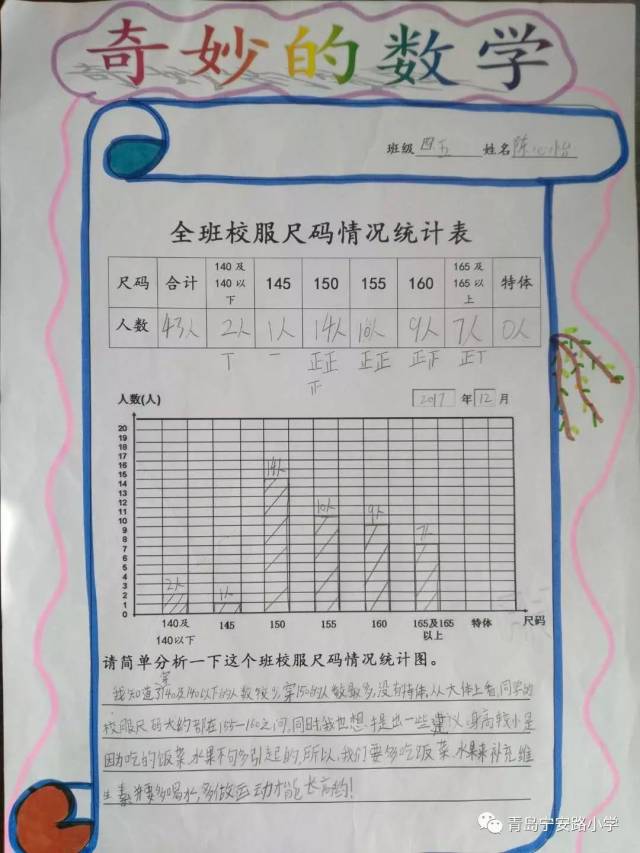 奇妙的数学
班级 四五 姓名 陈心怡
全班校服尺码情况统计表
尺码 合计 140及140以下 145 150 155 160 165及165以上 特体
人数 43人 2人 1人 14人 10人 9人 7人 0人
丅 一 正正 正正 正正 正丅
正
人数(人) 2017 年 12 月
20
19
18
17
16
15
14
13
12
11
10
9
8
7
6
5
4
3
2
1
0
14人
10人
9人
7人
2人
1人
140及140以下 145 150 155 160 165及165以上 特体 尺码
请简单分析一下这个班校服尺码情况统计图。
我知道了穿140及140以下的人数较少,穿150的人数最多,没有特体。从大体上看,同学的
校服尺码大约都在155-160之间,同时,我也想提出一些建议,身高较小是
因为吃的饭菜、水果不够多引起的,所以,我们要多吃饭菜、水果来补充维
生素,要多喝水,多做运动才能长高的!
青岛宁安路小学